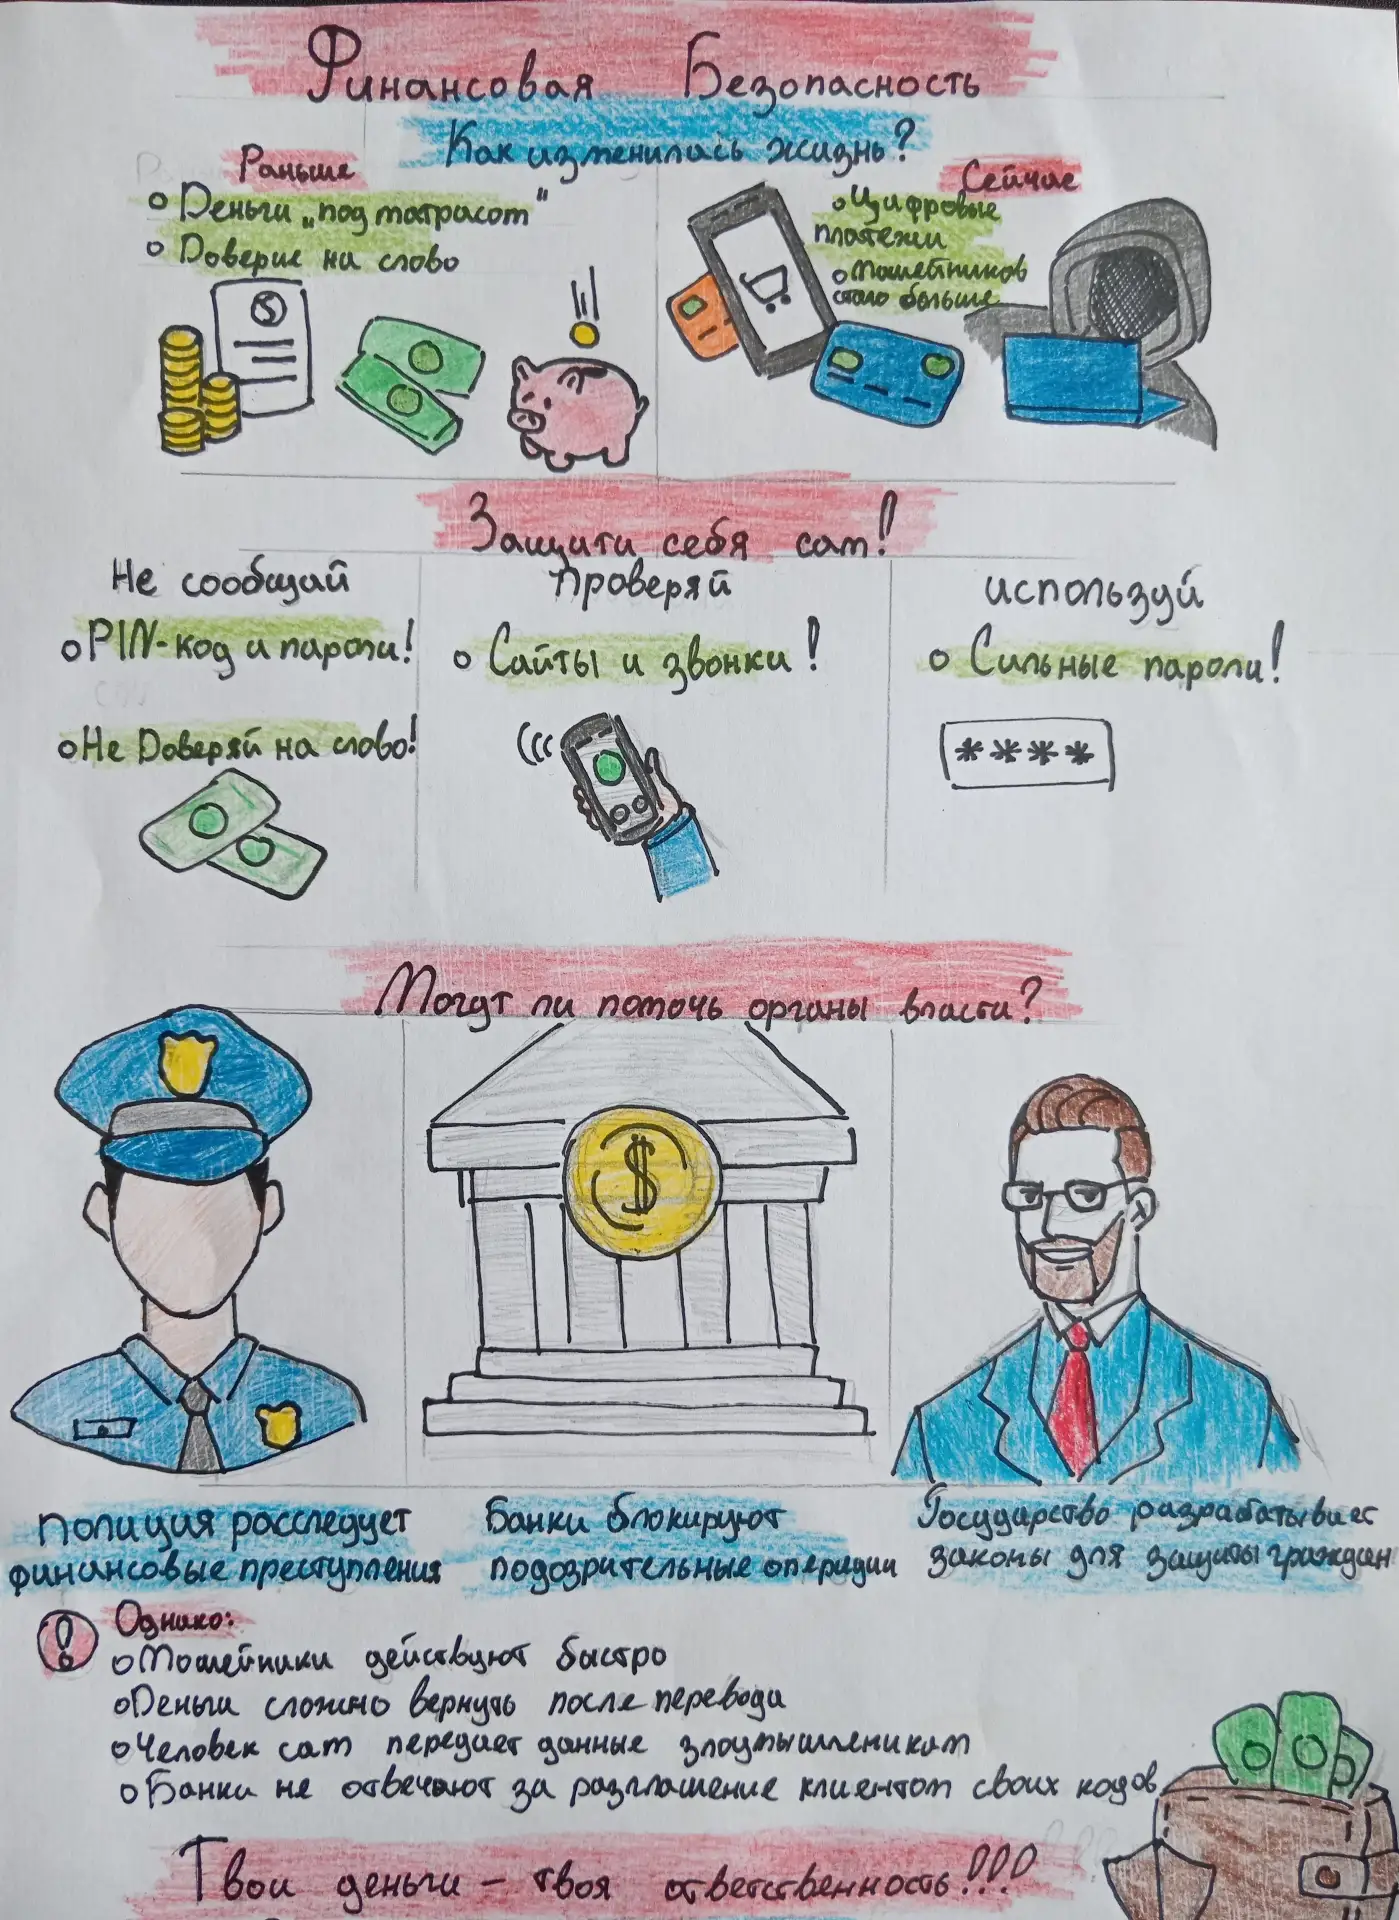 Финансовая Безопасность
Как изменилась жизнь?
Раньше
Деньги „под матрасом"
Доверие на слово
Сейчас
Цифровые
платежи
Мошенников
стало больше
Защити себя сам!
Не сообщай
PIN-код и пароли!
Не Доверяй на слово!
Проверяй
Сайты и звонки!
используй
Сильные пароли!
****
Могут ли помочь органы власти?
$
Полиция расследует
финансовые преступления
Банки блокируют
подозрительные операции
Государство разрабатывает
законы для защиты граждан
!
Однако:
Мошенники действуют быстро
Деньги сложно вернуть после перевода
Человек сам передает данные злоумышленикам
Банки не отвечают за разглашение клиентом своих кодов
Твои деньги – твоя ответственность!!!